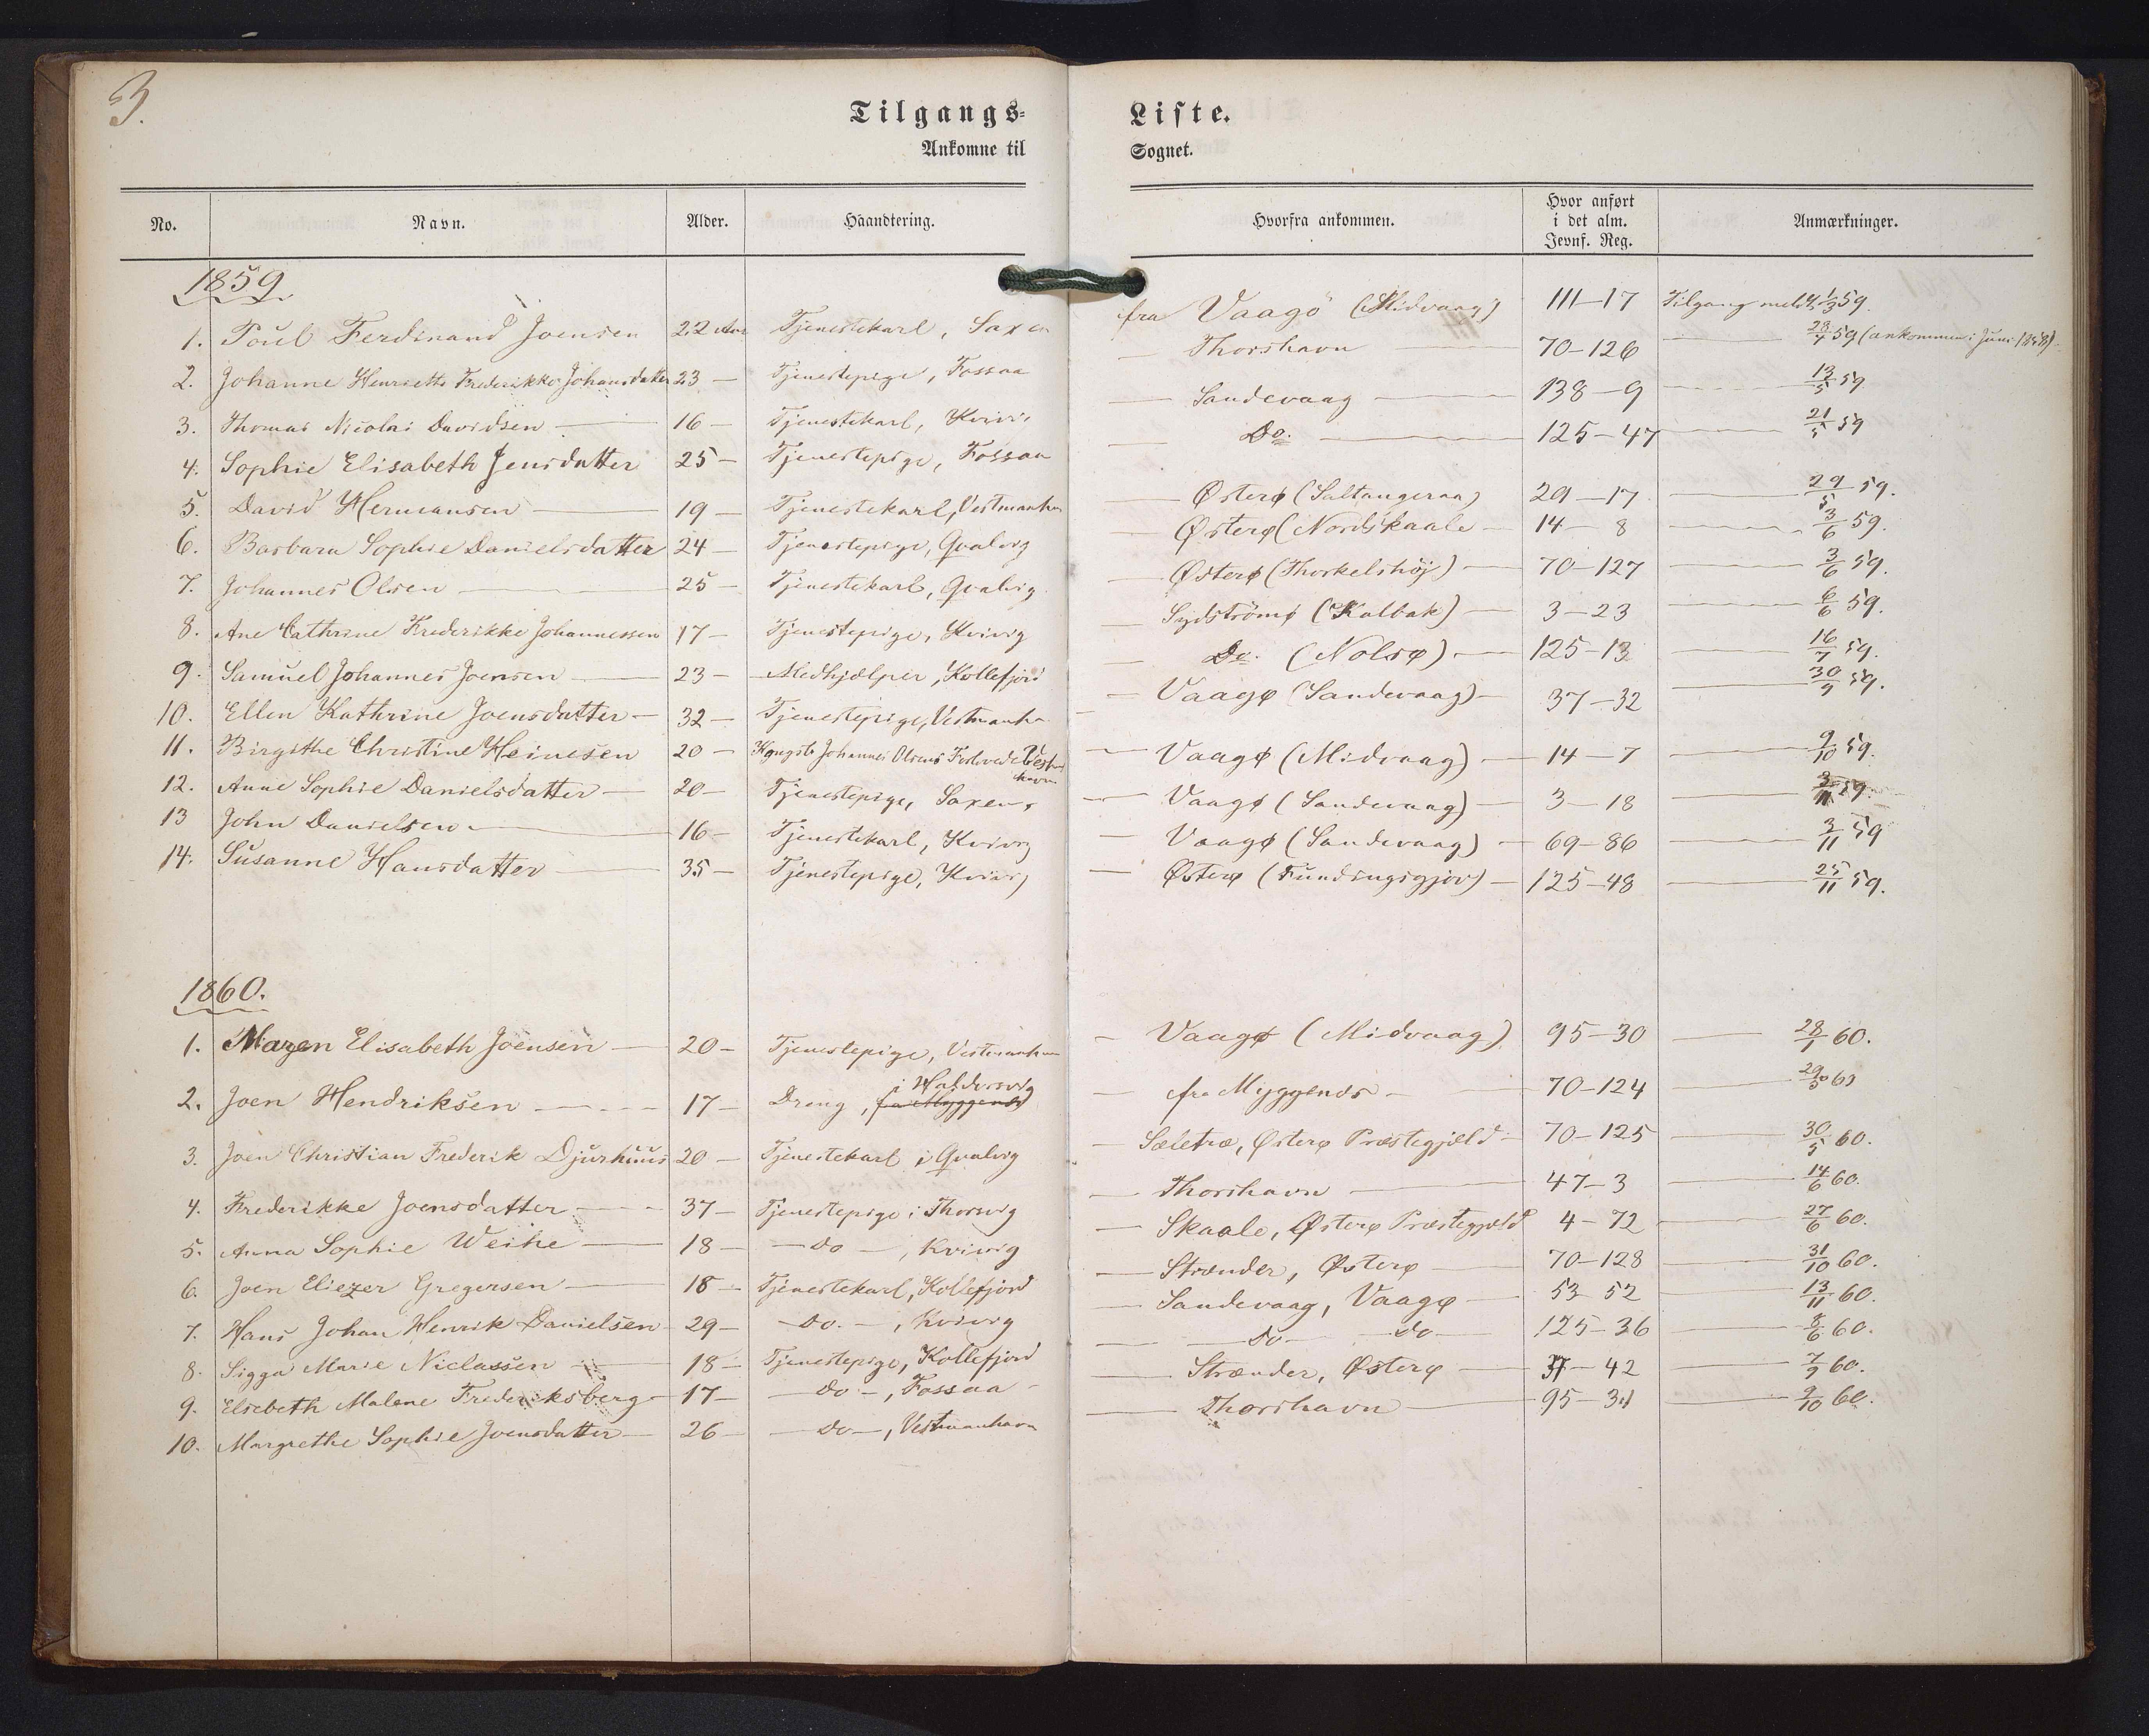 3.
Tilgangs-Liste.
Ankomne til Sognet.
No. Navn. Alder. Haandtering. Hvorfra ankommen. Hvor anført i det alm. Jevnf. Reg. Anmærkninger.
1859
1. Poul Ferdinand Joensen 22 Aar Tjenestekarl, Saxen fra Vaagö (Midvaag) 111-17 Tilgang meldt 1/3 59.
2. Johanne Henriette Frederikke Johansdatter 23 — Tjenestepige, Fossaa — Thorshavn 70-126 — 28/4 59 (ankommen i Juni 1858).
3. Thomas Nicolai Davidsen — 16 — Tjenestekarl, Kvivi — Sandevaag — 138-9 — 13/5 59
4. Sophie Elisabeth Jensdatter 25 — Tjenestepige, Fossaa — Do. — 125-47 — 21/5 59
5. David Hermansen — 19 — Tjenestekarl, Vestmanha — Østerø (Saltangeraa) 29-17 — 29/5 59.
6. Barbara Sophie Danielsdatter 24 — Tjenestepige, Qvalvig — Østerø (Nordskaale — 14-8 — 3/6 59.
7. Johannes Olsen — 25 — Tjenestekarl, Qvalvig — Østerø (Thorkelshøj) — 70-127 — 3/6 59.
8. Ane Cathrine Frederikke Johannessen 17 — Tjenestepige, Kvivig — Sydströmø (Kalbak) — 3-23 — 6/6 59.
9. Samuel Johannes Joensen — 23 — Medhjælper, Kollefjord — Do. (Nolsø) — 125-13 — 16/7 59.
10. Ellen Kathrine Joensdatter — 32 — Tjenestepige, Vestmanha — Vaagø (Sandevaag) — 37-32 — 30/9 59.
11. Birgithe Christine Heinesen 20 — Kgngsb. Johannes Olsens Forlovede Vestmhavn — Vaagø (Midvaag) — 14-7 — 9/10 59.
12. Anne Sophie Danielsdatter — 20 — Tjenestepige, Saxen, — Vaagø (Sandevaag) — 3-18 — 3/11 59.
13 John Danielsen — 16 — Tjenestekarl, Kvivig — Vaagø (Sandevaag) — 69-86 — 3/11 59
14. Susanne Hansdatter — 35 — Tjenestepige, Kvivig — Østerø (Fundingsgjov) — 125-48 — 25/11 59.
1860.
1. Maren Elisabeth Joensen — 20 — Tjenestepige, Vestmanha — Vaagø (Midvaag) 95-30 — 28/1 60.
2. Joen Hendriksen — 17 — Dreng, fra Myggenæs i Haldersvig — fra Myggenæs — 70-124 — 29/3 60
3. Joen Christian Frederik Djurhuus 20 — Tjenestekarl i Qvalvig — Sæletræ, Østerø Præstegjæld — 70-125 — 30/5 60.
4. Frederikke Joensdatter — 37 — Tjenestepige i Thorsvig — Thorshavn — 47-3 — 14/6 60.
5. Anna Sophie Weihe — 18 — — do —, Kvivig — Skaale, Østerø Præstegjæld 4-72 — 27/6 60.
6. Joen Eliezer Gregersen — 18 — Tjenestekarl, Kollefjord — Strænder, Østerø — 70-128 — 31/10 60.
7. Hans Johan Henrik Danielsen — 29 — — Do. —, Kvivig — Sandevaag, Vaagø — 53 52 — 13/11 60.
8. Sigga Marie Niclassen — 18 — Tjenestepige, Kollefjord — do — — do — 125-36 — 8/6 60.
9. Elsebeth Malene Frederiksberg — 17 — — do —, Fossaa — Strænder, Østerø — 37-42 — 7/9 60.
10. Margrethe Sophie Joensdatter — 26 — — do —, Vestmanhavn — Thorshavn — 95-31 — 9/10 60.